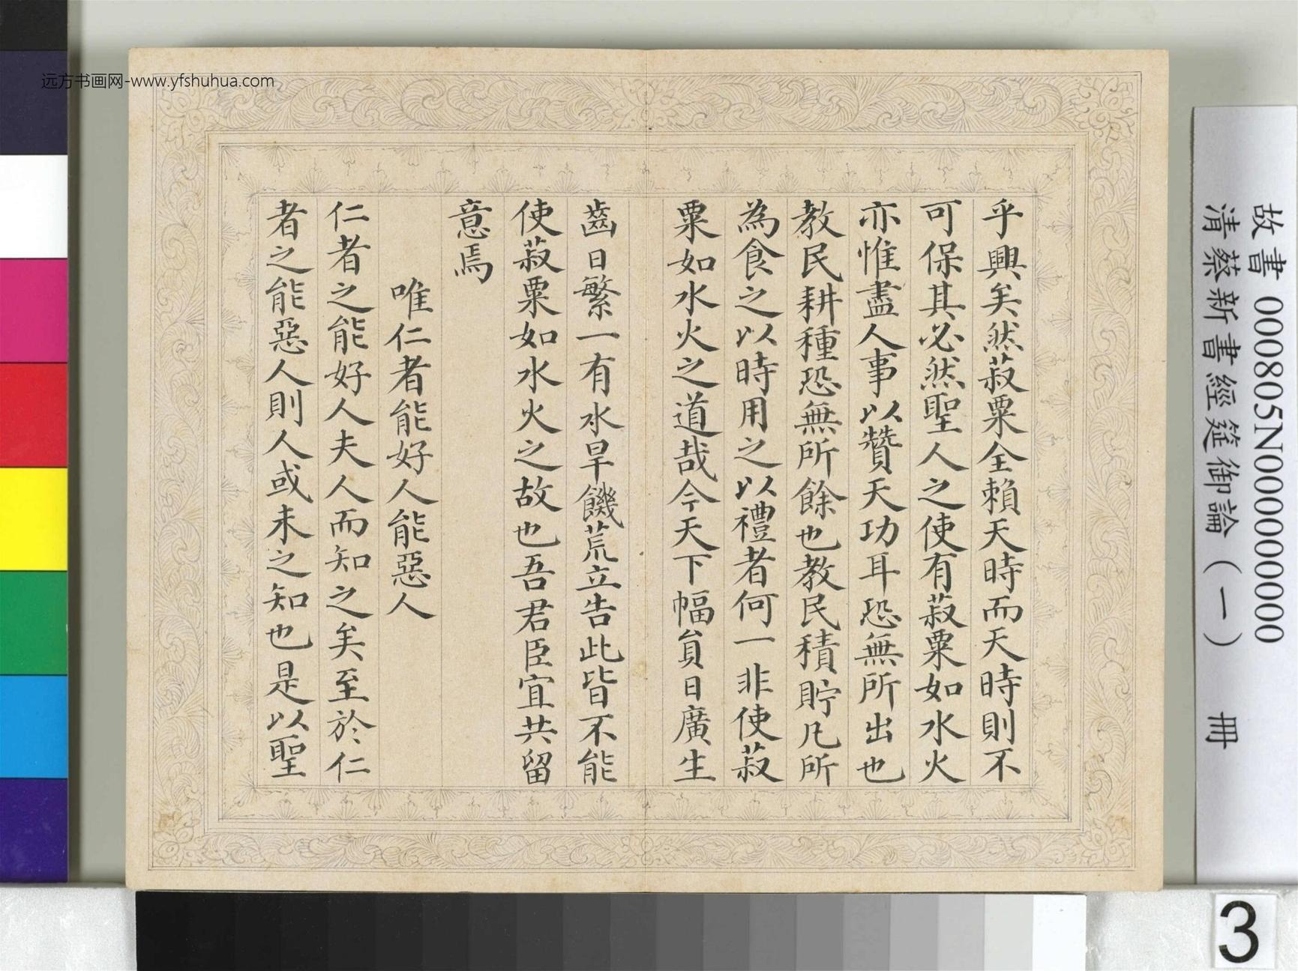 远方书画网-www.yfshuhua.com
故書 000805N000000000
清蔡新書經筵御論（一） 冊
乎興矣然菽粟全賴天時而天時則不
可保其必然聖人之使有菽粟如水火
亦惟盡人事以贊天功耳恐無所出也
教民耕種恐無所餘也教民積貯凡所
為食之以時用之以禮者何一非使菽
粟如水火之道哉今天下幅員日廣生
齒日繁一有水旱饑荒立告此皆不能
使菽粟如水火之故也吾君臣宜共留
意焉
唯仁者能好人能惡人
仁者之能好人夫人而知之矣至於仁
者之能惡人則人或未之知也是以聖
3